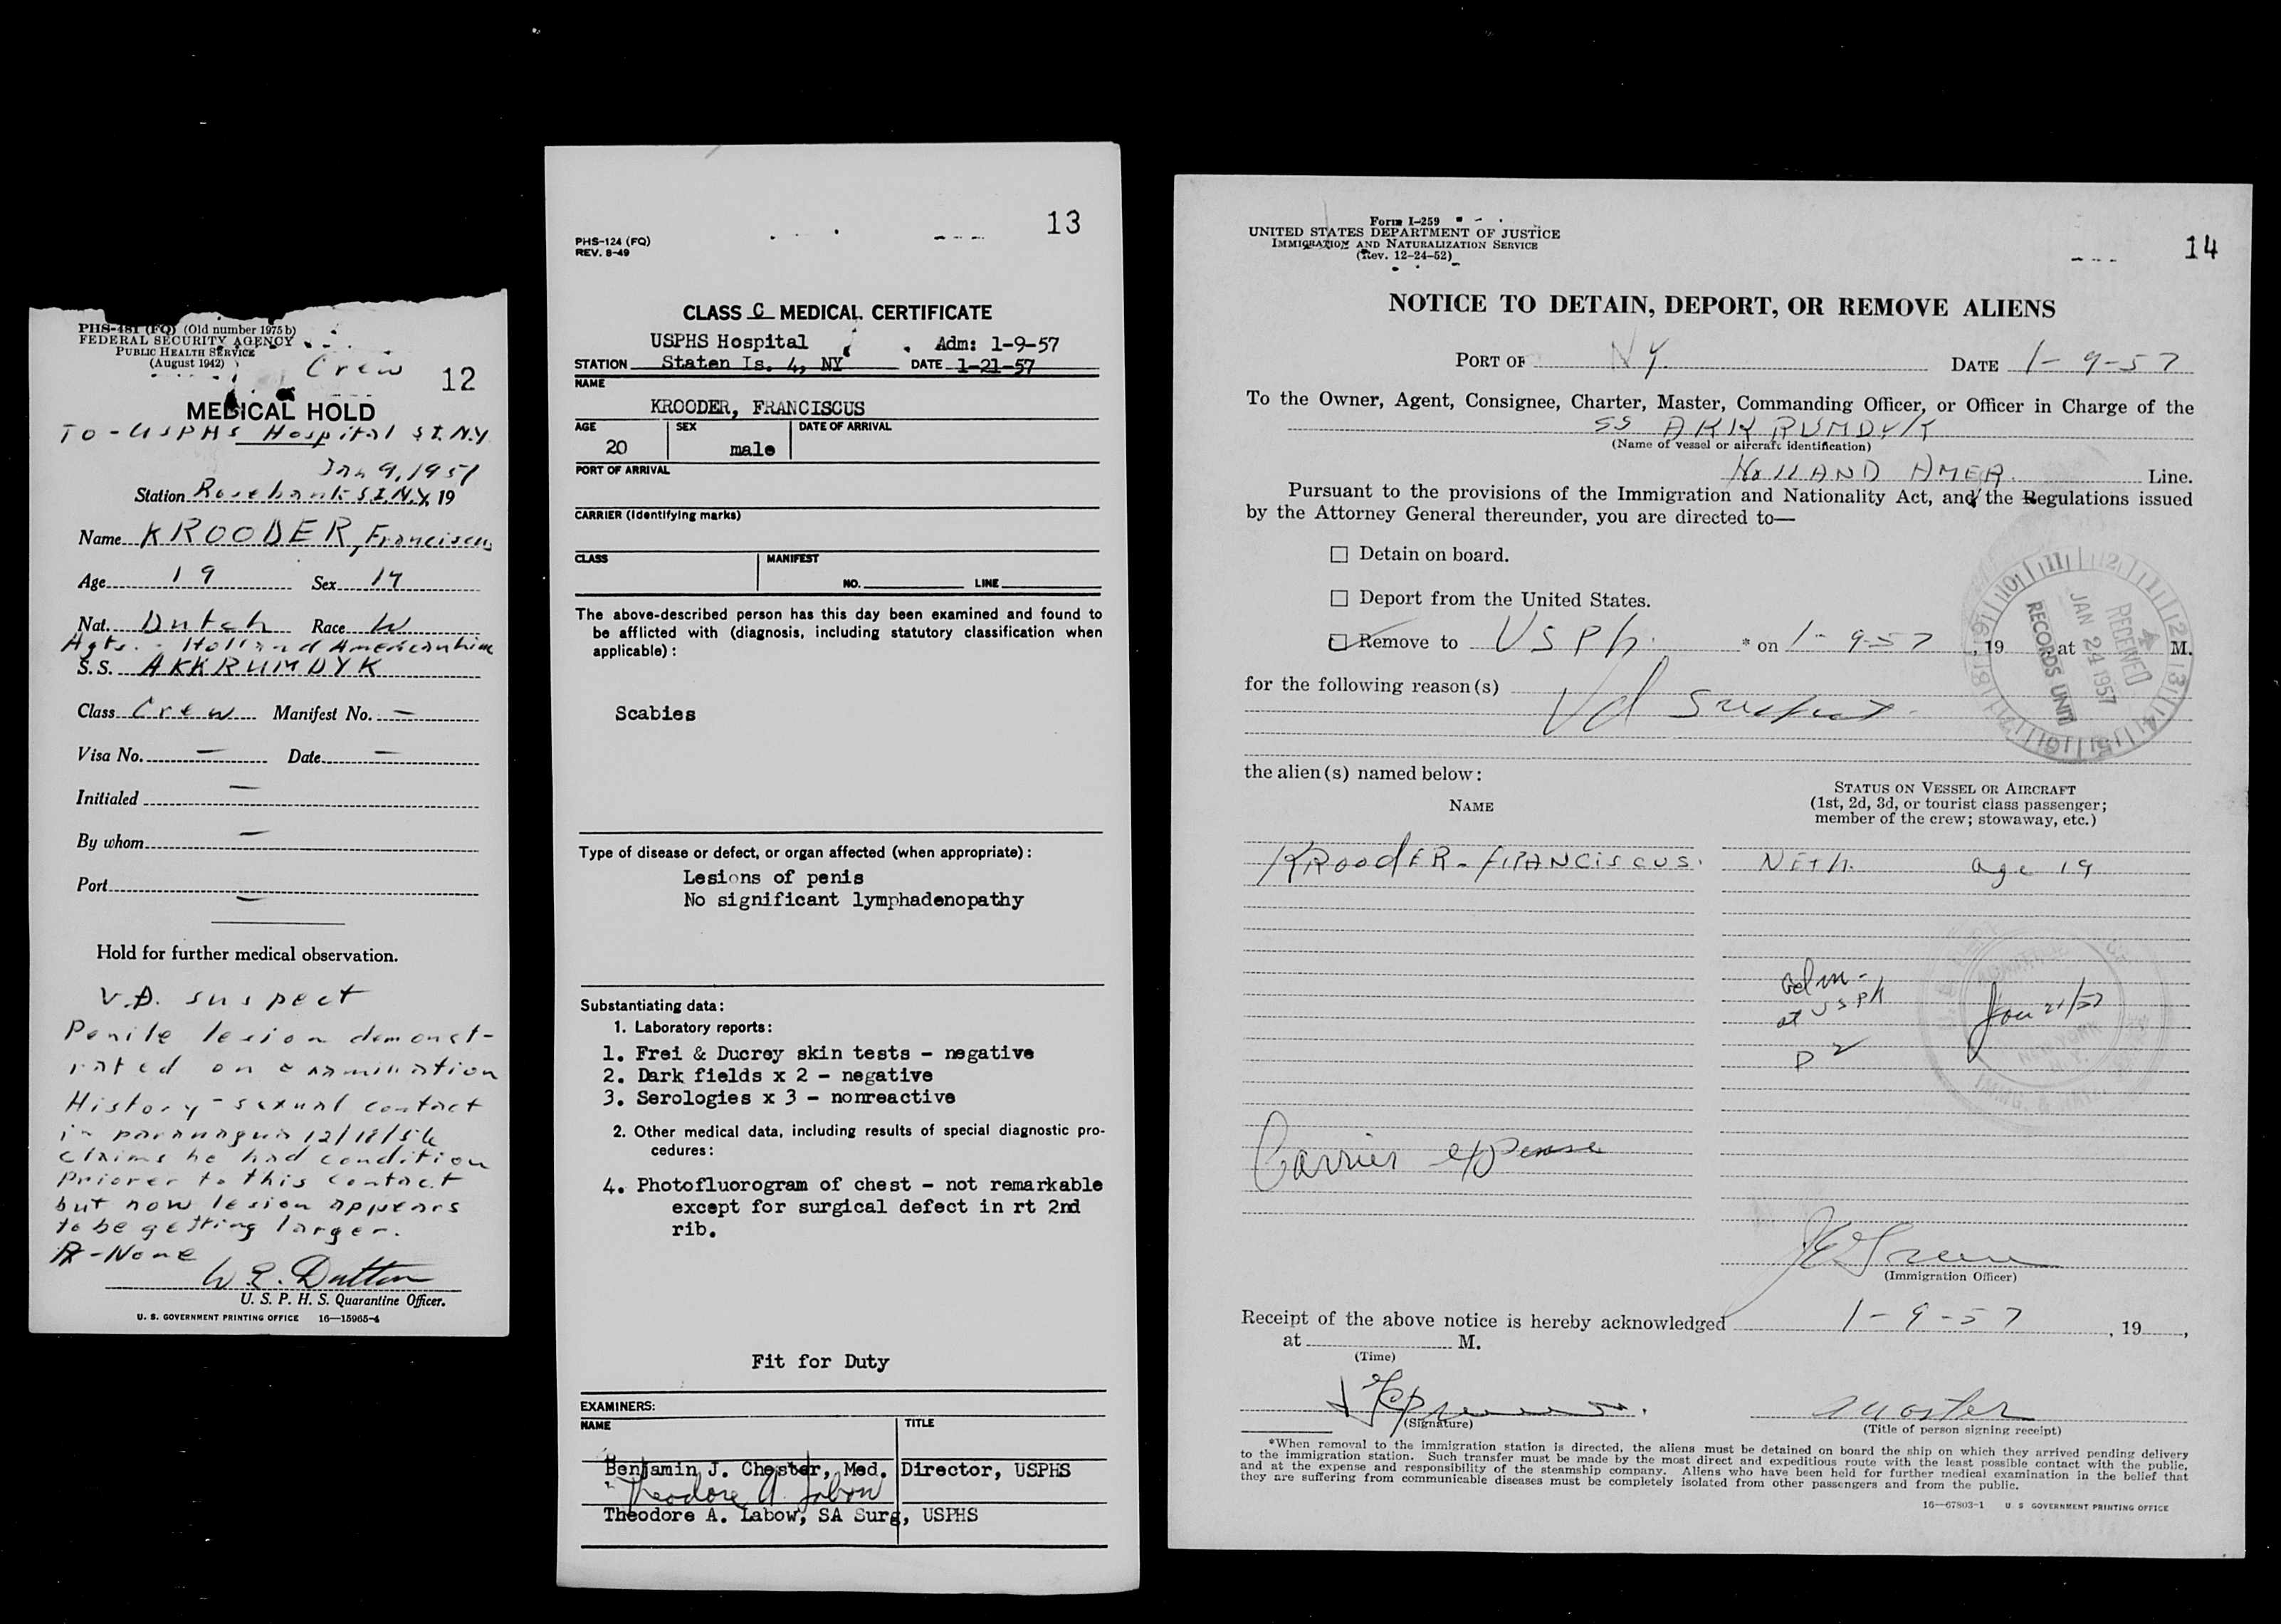 PHS-481 (FQ) (Old number 1975 b)
FEDERAL SECURITY AGENCY
PUBLIC HEALTH SERVICE
(August 1942)
Crew
12
MEDICAL HOLD
To - USPHS Hospital S.I.N.Y.
Jan 9, 1957
Station Rosebank S.I.N.Y. 19
Name KROODER, Franciscus
Age 19 Sex M
Nat. Dutch Race W
Agts. - Holland American Line
S.S. AKKRUMDYK
Class Crew Manifest No. —
Visa No. — Date —
Initialed —
By whom —
Port —
Hold for further medical observation.
V.D. suspect
Penile lesion demonst-
rated on examination
History - sexual contact
in paranagua 12/18/56
claims he had condition
priorer to this contact
but now lesion appears
to be getting larger.
Rx - None
W. E. Dutton
U. S. P. H. S. Quarantine Officer.
U. S. GOVERNMENT PRINTING OFFICE 16—15965-4
13
PHS-124 (FQ)
REV. 8-49
CLASS C MEDICAL CERTIFICATE
USPHS Hospital Adm: 1-9-57
STATION Staten Is. 4, NY DATE 1-21-57
NAME
KROODER, FRANCISCUS
AGE SEX DATE OF ARRIVAL
20 male
PORT OF ARRIVAL
CARRIER (Identifying marks)
CLASS MANIFEST
NO. LINE
The above-described person has this day been examined and found to
be afflicted with (diagnosis, including statutory classification when
applicable):
Scabies
Type of disease or defect, or organ affected (when appropriate):
Lesions of penis
No significant lymphadenopathy
Substantiating data:
1. Laboratory reports:
1. Frei & Ducrey skin tests - negative
2. Dark fields x 2 - negative
3. Serologies x 3 - nonreactive
2. Other medical data, including results of special diagnostic pro-
cedures:
4. Photofluorogram of chest - not remarkable
except for surgical defect in rt 2nd
rib.
Fit for Duty
EXAMINERS:
NAME TITLE
Benjamin J. Chester, Med. Director, USPHS
Theodore A. Labow
Theodore A. Labow, SA Surg, USPHS
Form I-259
UNITED STATES DEPARTMENT OF JUSTICE
IMMIGRATION AND NATURALIZATION SERVICE
(Rev. 12-24-52)
14
NOTICE TO DETAIN, DEPORT, OR REMOVE ALIENS
PORT OF NY. DATE 1-9-57
To the Owner, Agent, Consignee, Charter, Master, Commanding Officer, or Officer in Charge of the
SS AKKRUMDYK
(Name of vessel or aircraft identification)
HOLLAND AMER. Line.
Pursuant to the provisions of the Immigration and Nationality Act, and the Regulations issued
by the Attorney General thereunder, you are directed to—
☐ Detain on board.
☐ Deport from the United States.
☐ Remove to USPh. * on 1-9-57, 19 at M.
for the following reason(s) Vd suspect.
RECEIVED
JAN 24 1957
RECORDS UNIT
the alien(s) named below:
NAME
STATUS ON VESSEL OR AIRCRAFT
(1st, 2d, 3d, or tourist class passenger;
member of the crew; stowaway, etc.)
KROODER - FRANCISCUS. NETH. age 19
adm -
at USPH Jan 21/57
D2
NEW YORK
N.Y.
Carrier expense
(Immigration Officer)
Receipt of the above notice is hereby acknowledged 1-9-57, 19 ,
at M.
(Time)
(Signature)
Master
(Title of person signing receipt)
*When removal to the immigration station is directed, the aliens must be detained on board the ship on which they arrived pending delivery
to the immigration station. Such transfer must be made by the most direct and expeditious route with the least possible contact with the public,
and at the expense and responsibility of the steamship company. Aliens who have been held for further medical examination in the belief that
they are suffering from communicable diseases must be completely isolated from other passengers and from the public.
16—67803-1 U. S GOVERNMENT PRINTING OFFICE